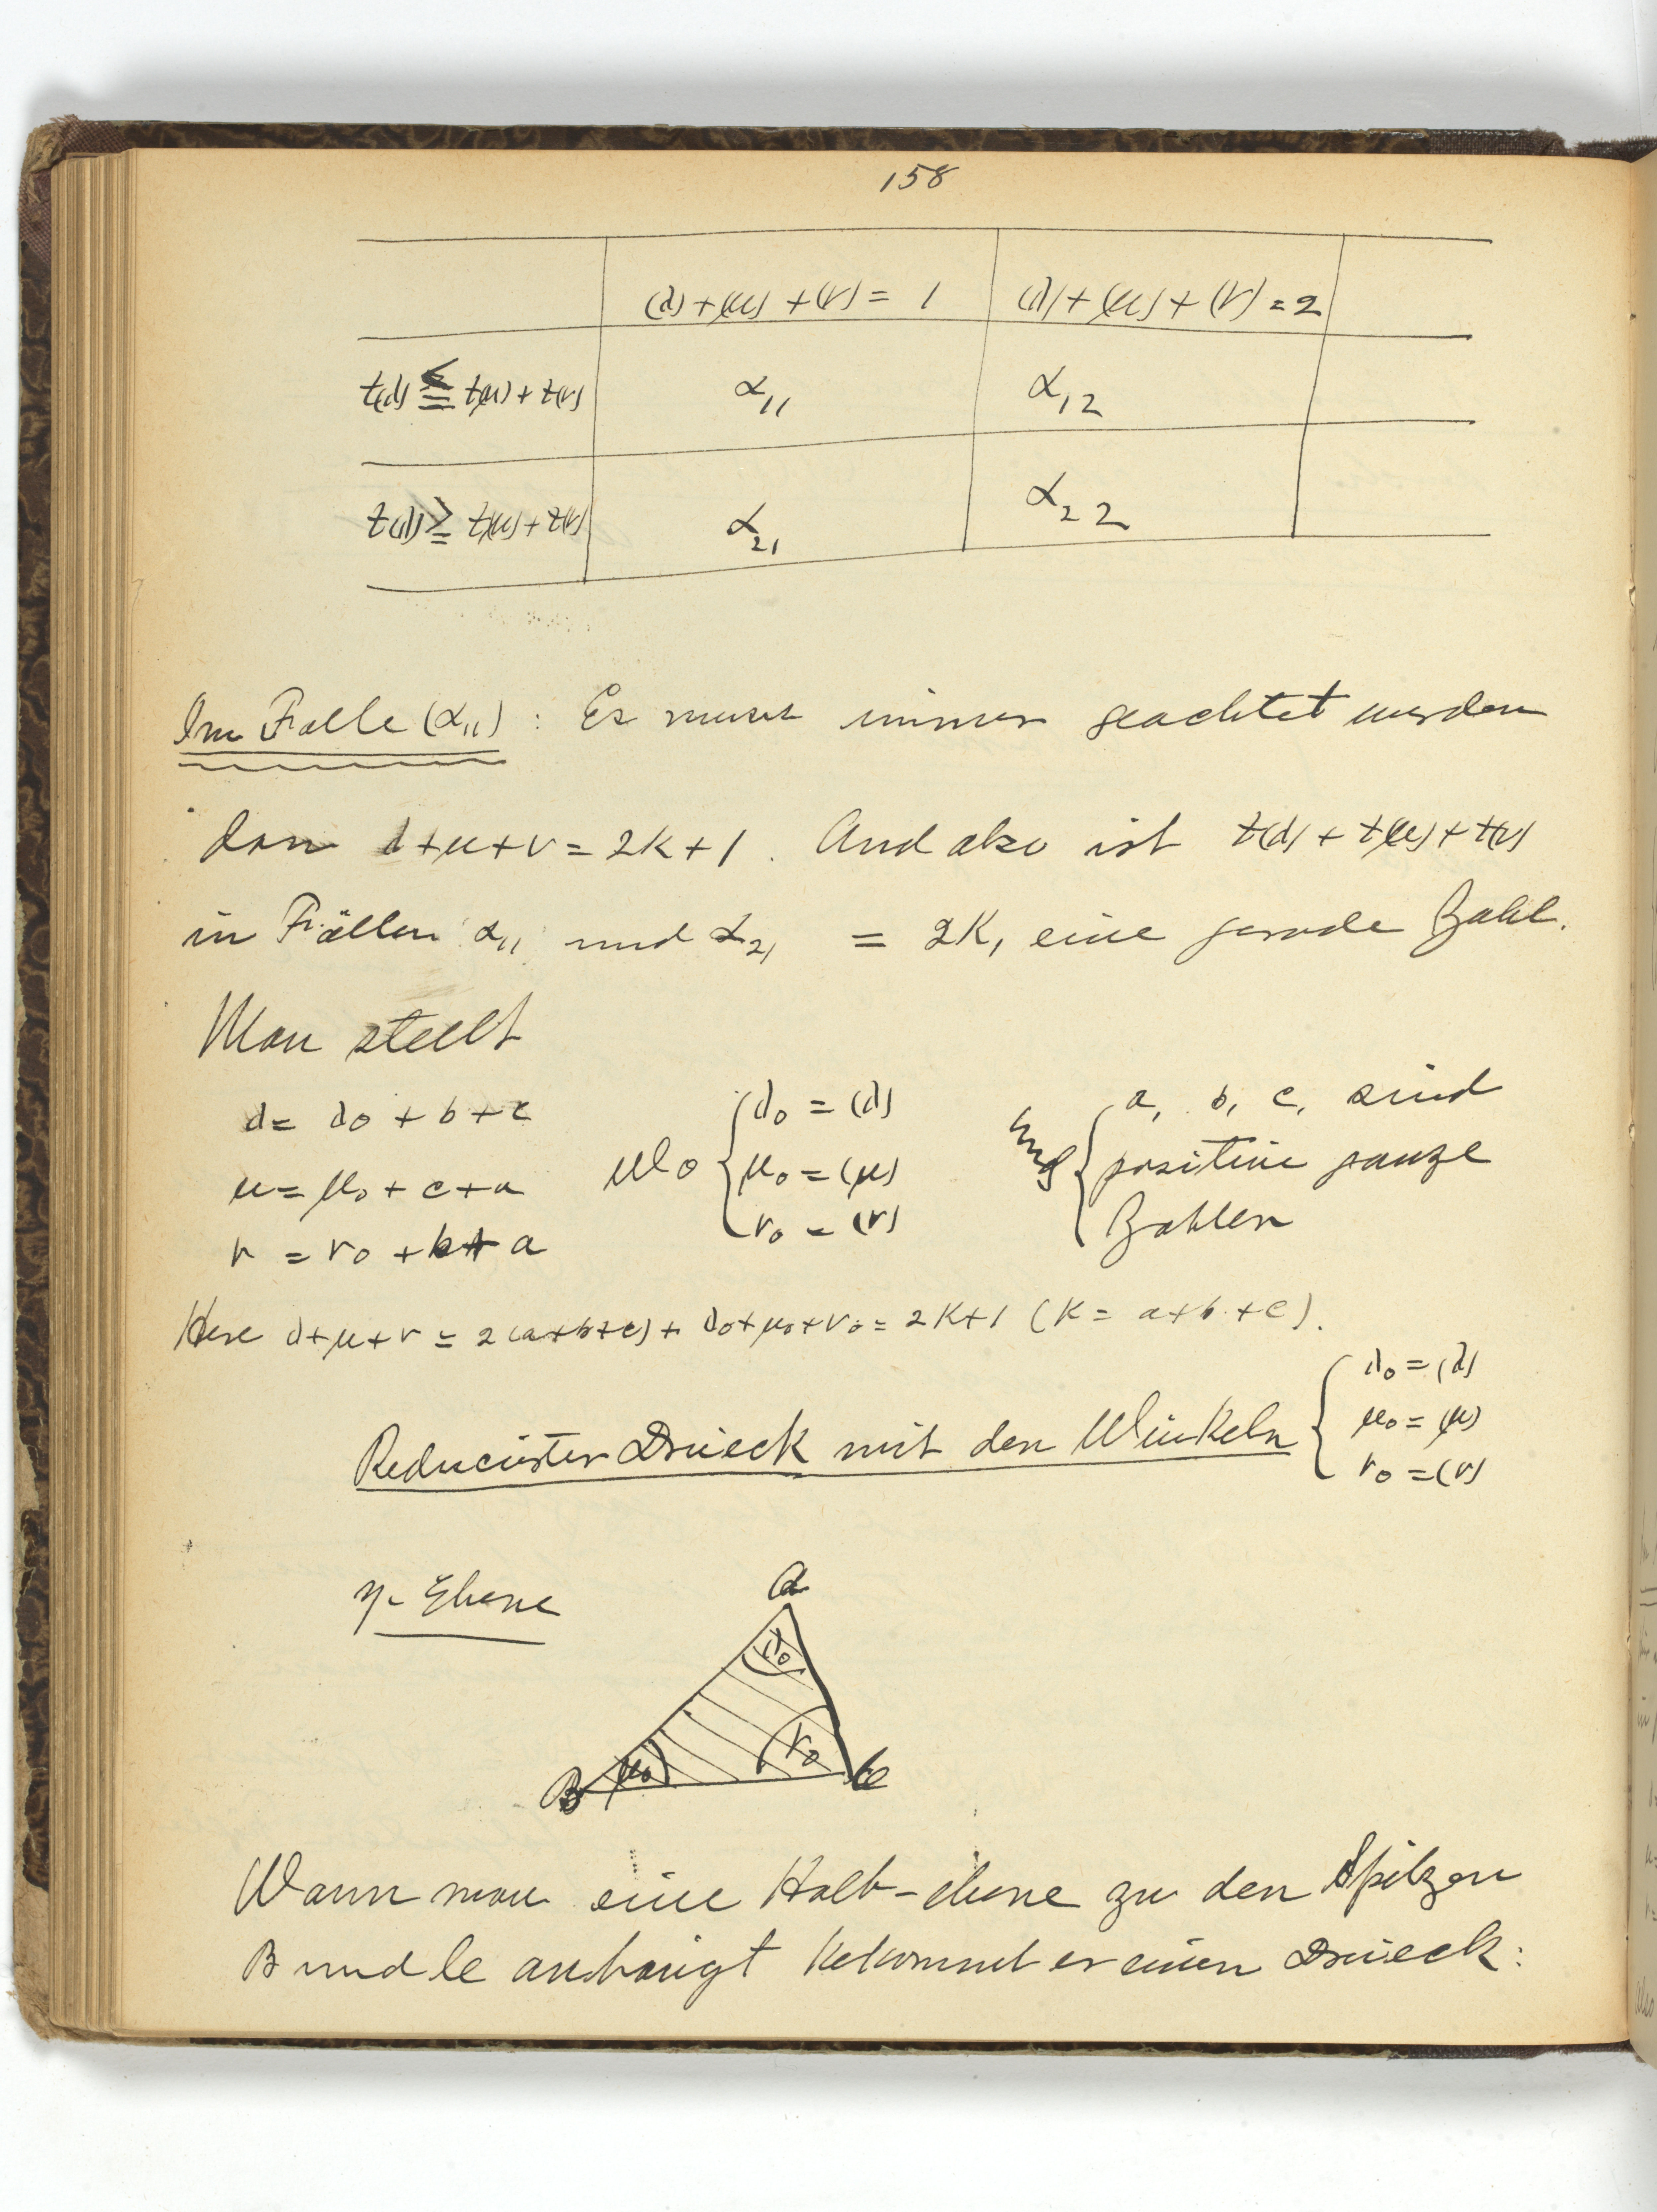 158
(λ)+(μ)+(ν) = 1 (λ)+(μ)+(ν) = 2
t(λ) ≦ t(μ) + t(ν) α₁₁ α₁₂
t(λ) ≧ t(μ) + t(ν) α₂₁ α₂₂
Im Falle (α₁₁) : Es muss immer geachtet werden
dan λ+μ+ν = 2k+1. And also ist t(λ) + t(μ) + t(ν)
in Fällen α₁₁ und α₂₁ = 2K, eine gerade Zahl.
Man stellt
λ = λ₀ + b + c
μ = μ₀ + c + a
ν = ν₀ + b + a
Wo { λ₀ = (λ)
μ₀ = (μ)
ν₀ = (ν)
und { a, b, c, sind
positive ganze
Zahlen
Here λ+μ+ν = 2(a+b+c) + λ₀+μ₀+ν₀ = 2K+1 (K = a+b+c).
Reducirter Drieck mit den Winkeln { λ₀ = (λ)
μ₀ = (μ)
ν₀ = (ν)
η-Ebene
a
λ₀
B μ₀ ν₀ C
Wann man eine Halb-ebene zu den Spitzen
B und C anhängt bekommt er einen Drieck: